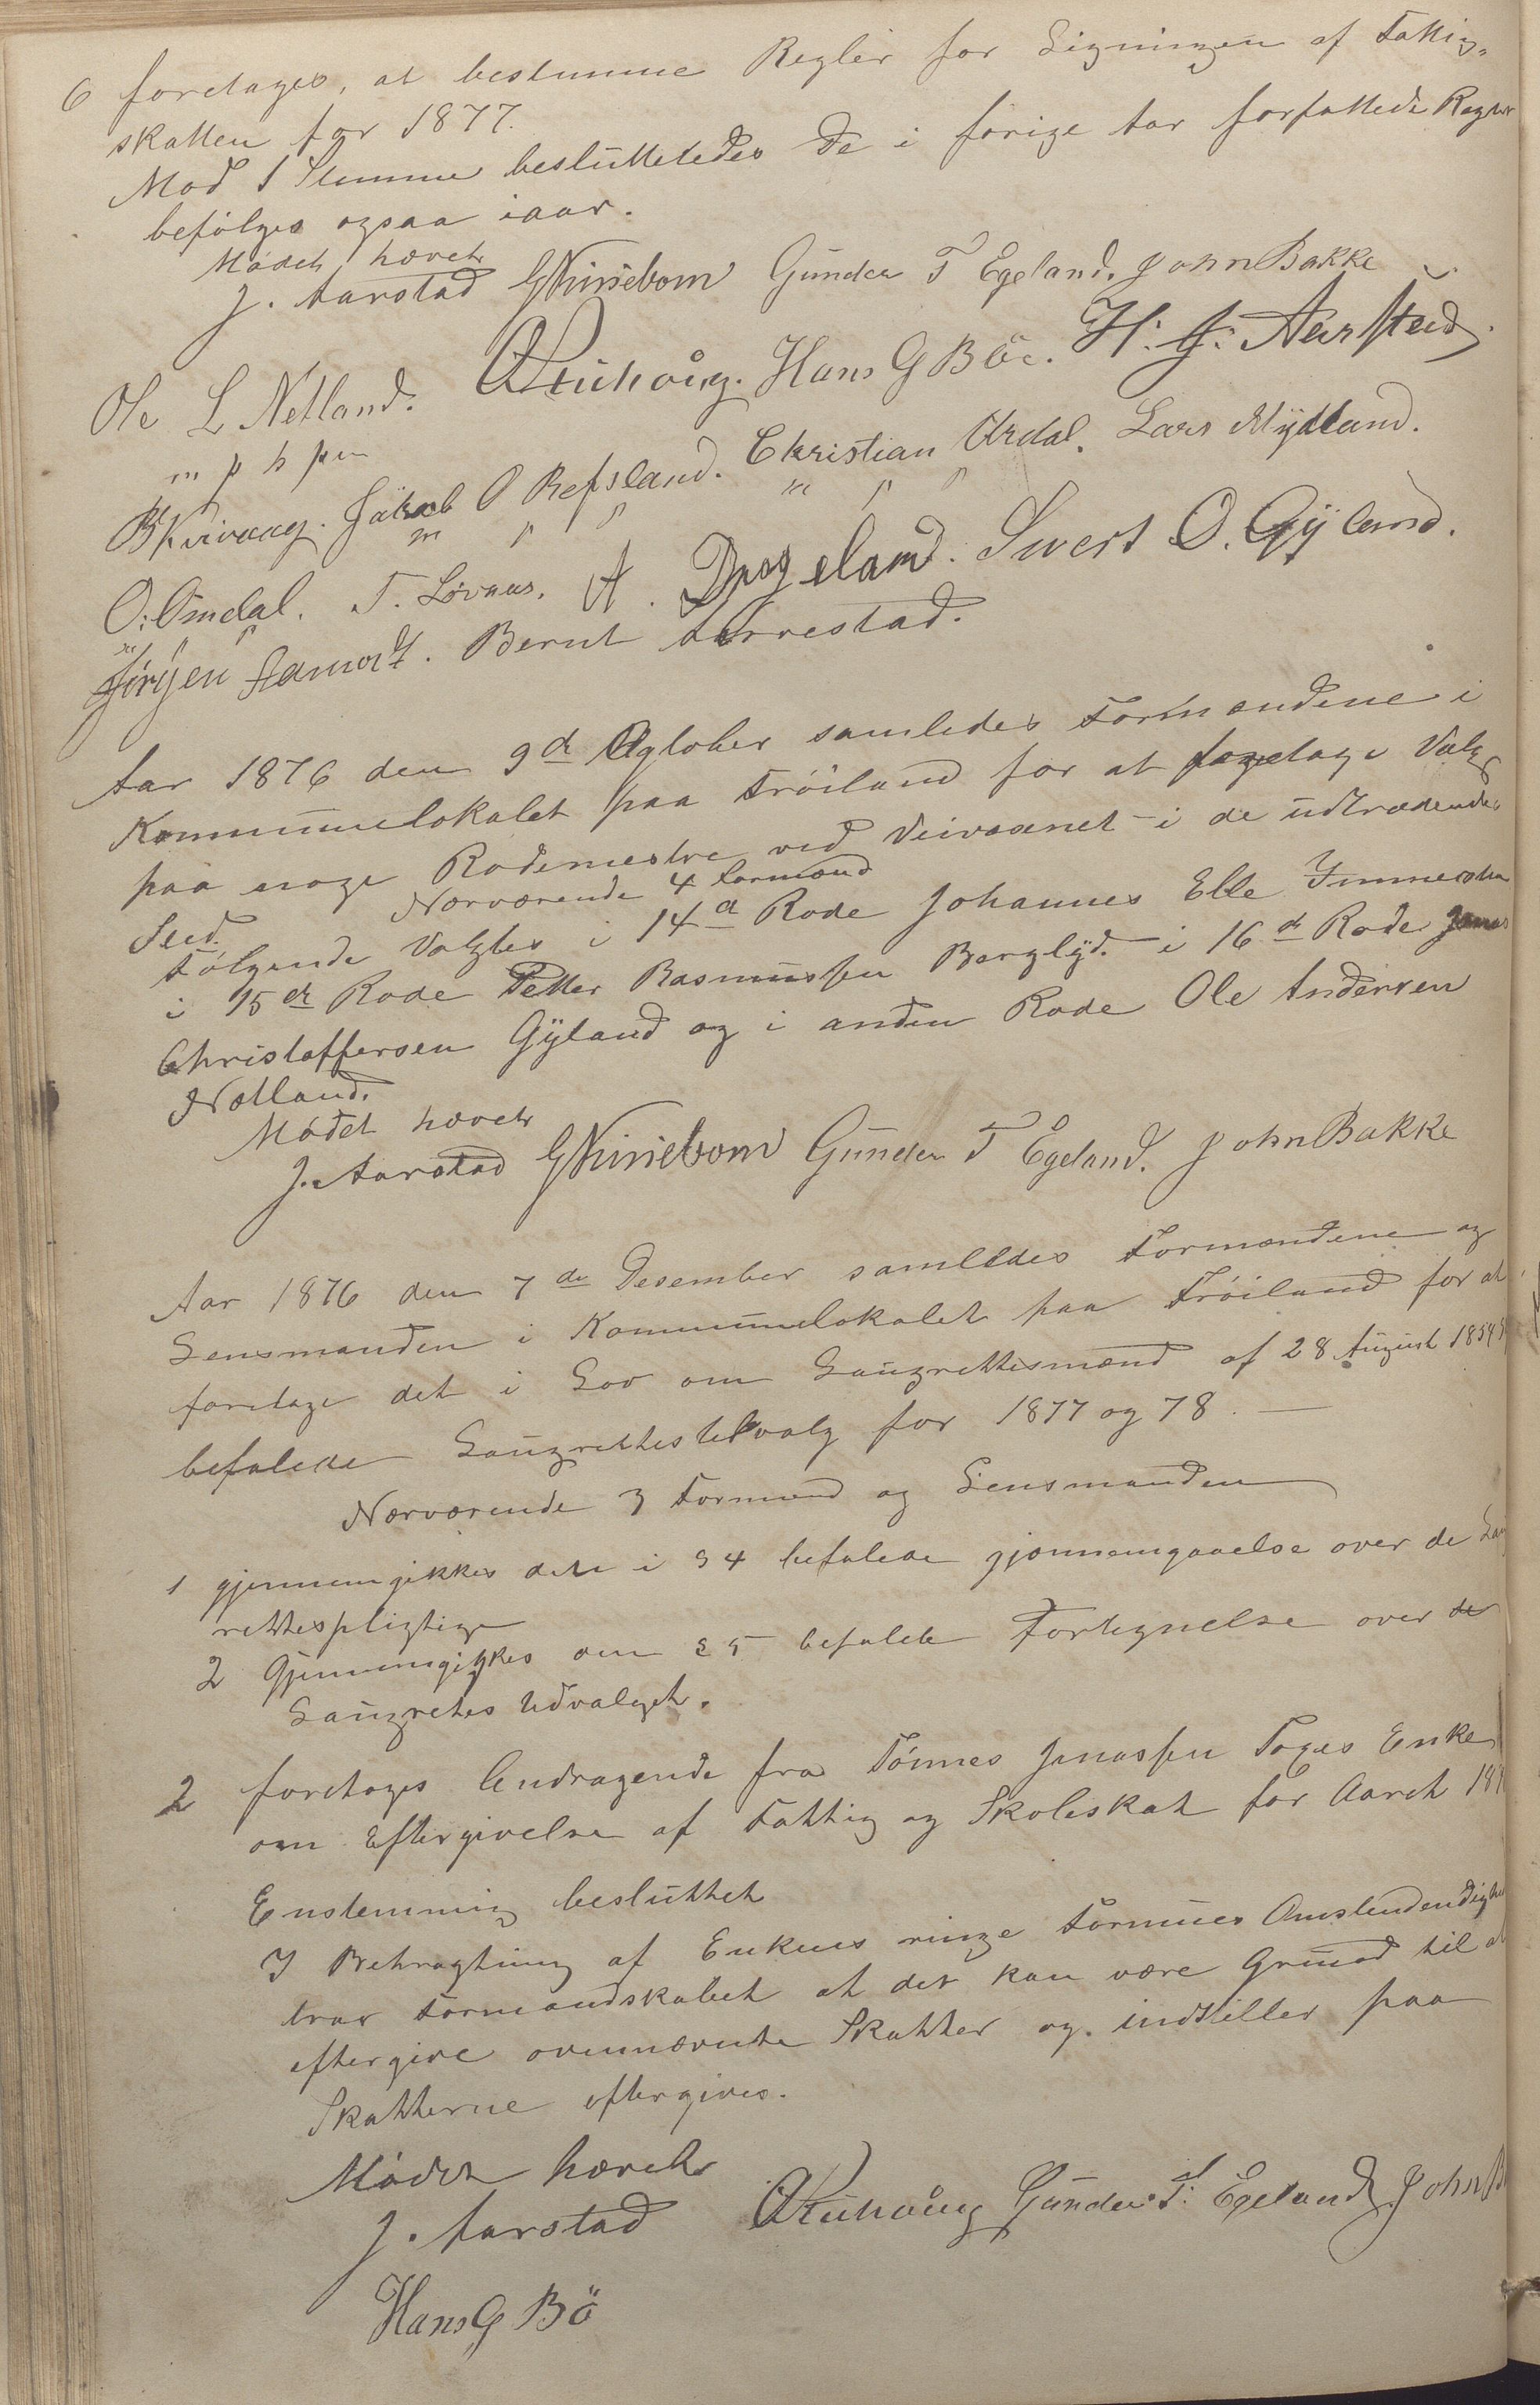 6 foretages, at bestumme Regler for Ligningen af Fattig-
skatten for 1877.
Mod 1 Stemme besluttetedes de i forige Aar forfattede Regler
befølges ogsaa iaar.
Mødet hævet
J. Aarstad Gunder T Egeland. John Bakke
Ole L Netland. Hans G Böe. H. J. Aarstad.
m p h pen
Jakob O Refsland. Christian Urdal. Lars Mydland.
O. Omdal. T. Løvaas. A. Sivert O. Gyland.
Jörgen Aamodt. Bernt
Aar 1876 den 9de Ogtober samledes Formændene i
Kommunelokalet paa Frøiland for at foretage Valg
paa noge Rodemestre ved Veivæsnet i de udtrædendes
Sted. Nærværende 4 Formænd
Følgende Valgtes i 14de Rode Johannes Elle
i 15de Rode Petter Rasmussen Berglyd. i 16de Rode Jonas
Christoffersen Gyland og i anden Rode Ole Andersen
Nætland.
Mødet hævet
J. Aarstad Gunder T Egeland. John Bakke
Aar 1876 den 7de Desember samledes Formændene og
Lensmanden i Kommunelokalet paa Frøiland for at
foretage det i Lov om Laugrettesmænd af 28 August 1854
befalede for 1877 og 78. —
Nærværende 3 Formænd og Lensmanden
1 gjennemgikkes den i § 4 befalede gjennemgaaelse over de Lau
rettespligtige
2 Gjennemgikkes om § 5 befalede Fortegnelse over de
Laugrettes Udvalget.
2 foretages Andragende fra Tønnes Jonassen Enke
om Eftergivelse af Fattig og Skoleskat for Aaret 187
Enstemmig besluttet
I Betragtning af Enkens ringe Formues Omstendendighe
tror Formandskabet at det kan være Grund til at
eftergive ovennævnte Skatter og indstiller paa
Skatterne eftergives.
Mødet hævet
J. Aarstad Gunder T. Egeland John B
Hans G Bö